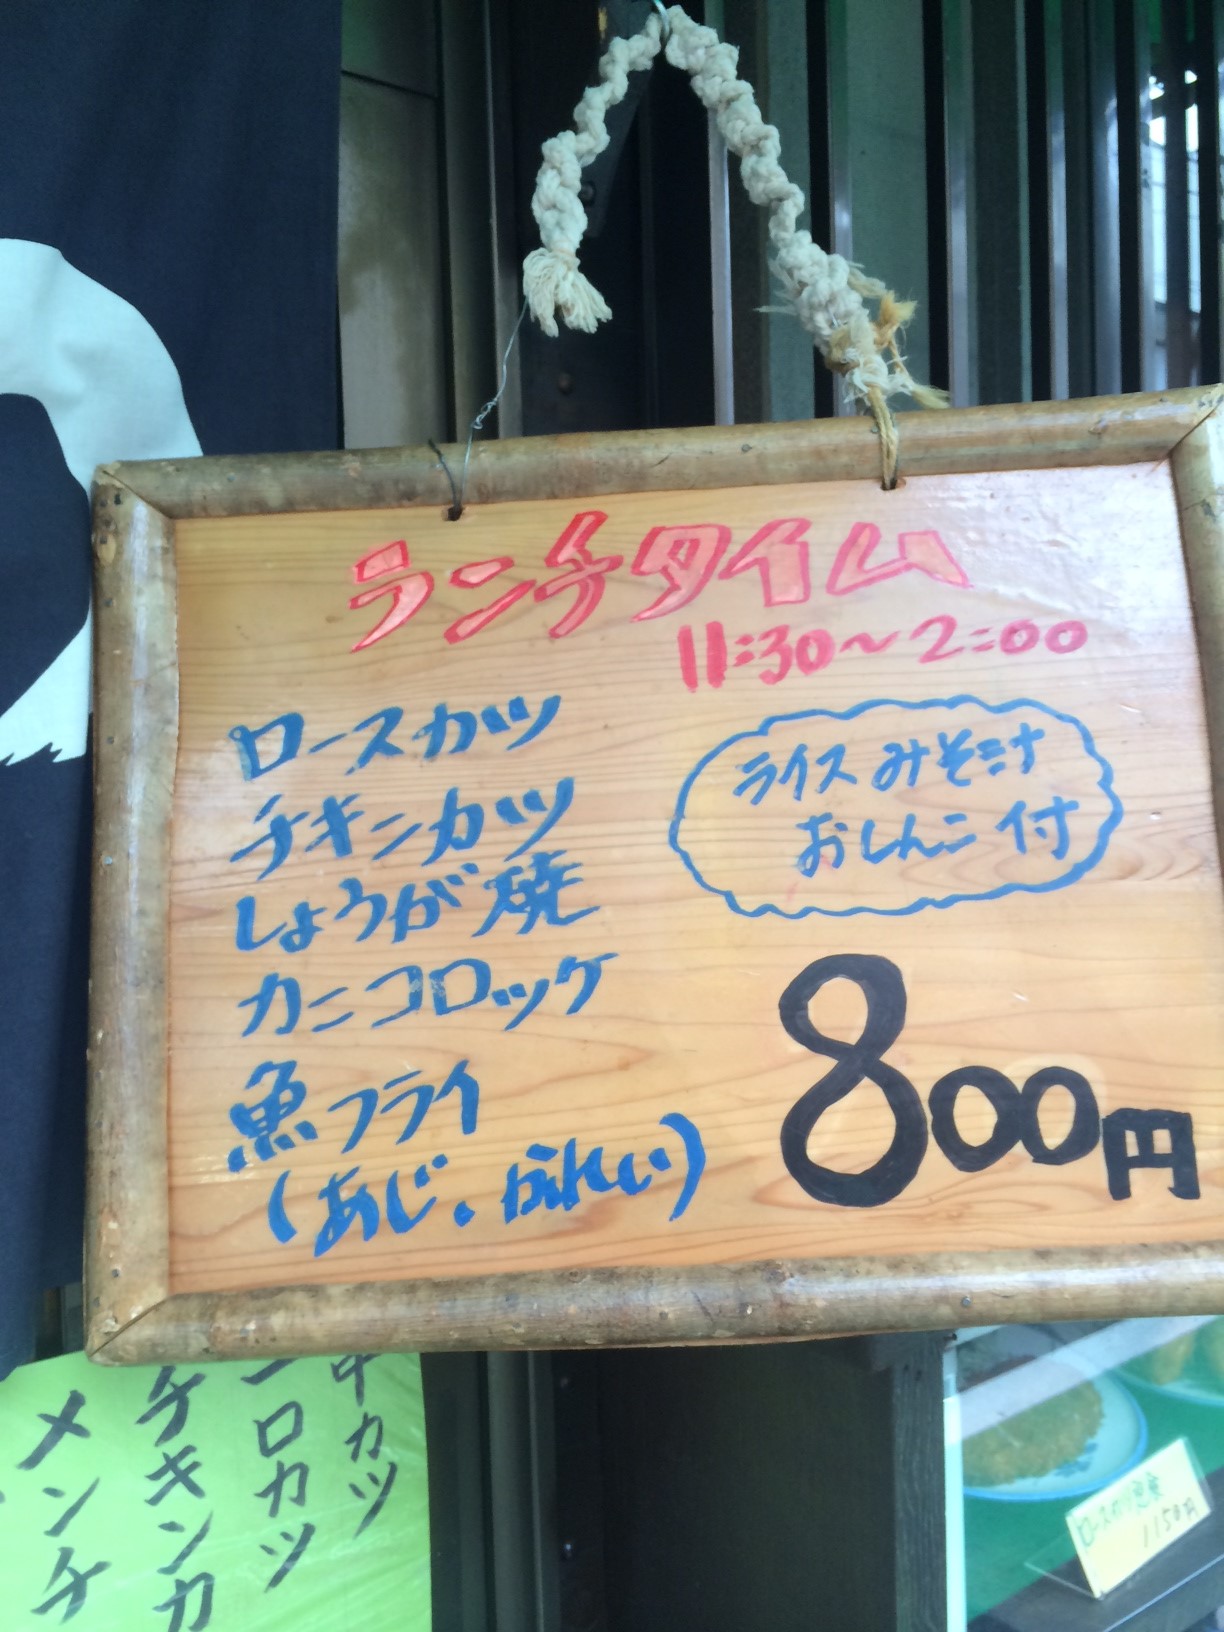 ランチタイム
11:30～2:00
ロースカツ
チキンカツ
しょうが焼
カニコロッケ
魚フライ
(あじ、かれい)
ライス みそ汁
おしんこ 付
800円
カツ
ロカツ
チキンカ
メンチ
ロースカツ定食
1150円